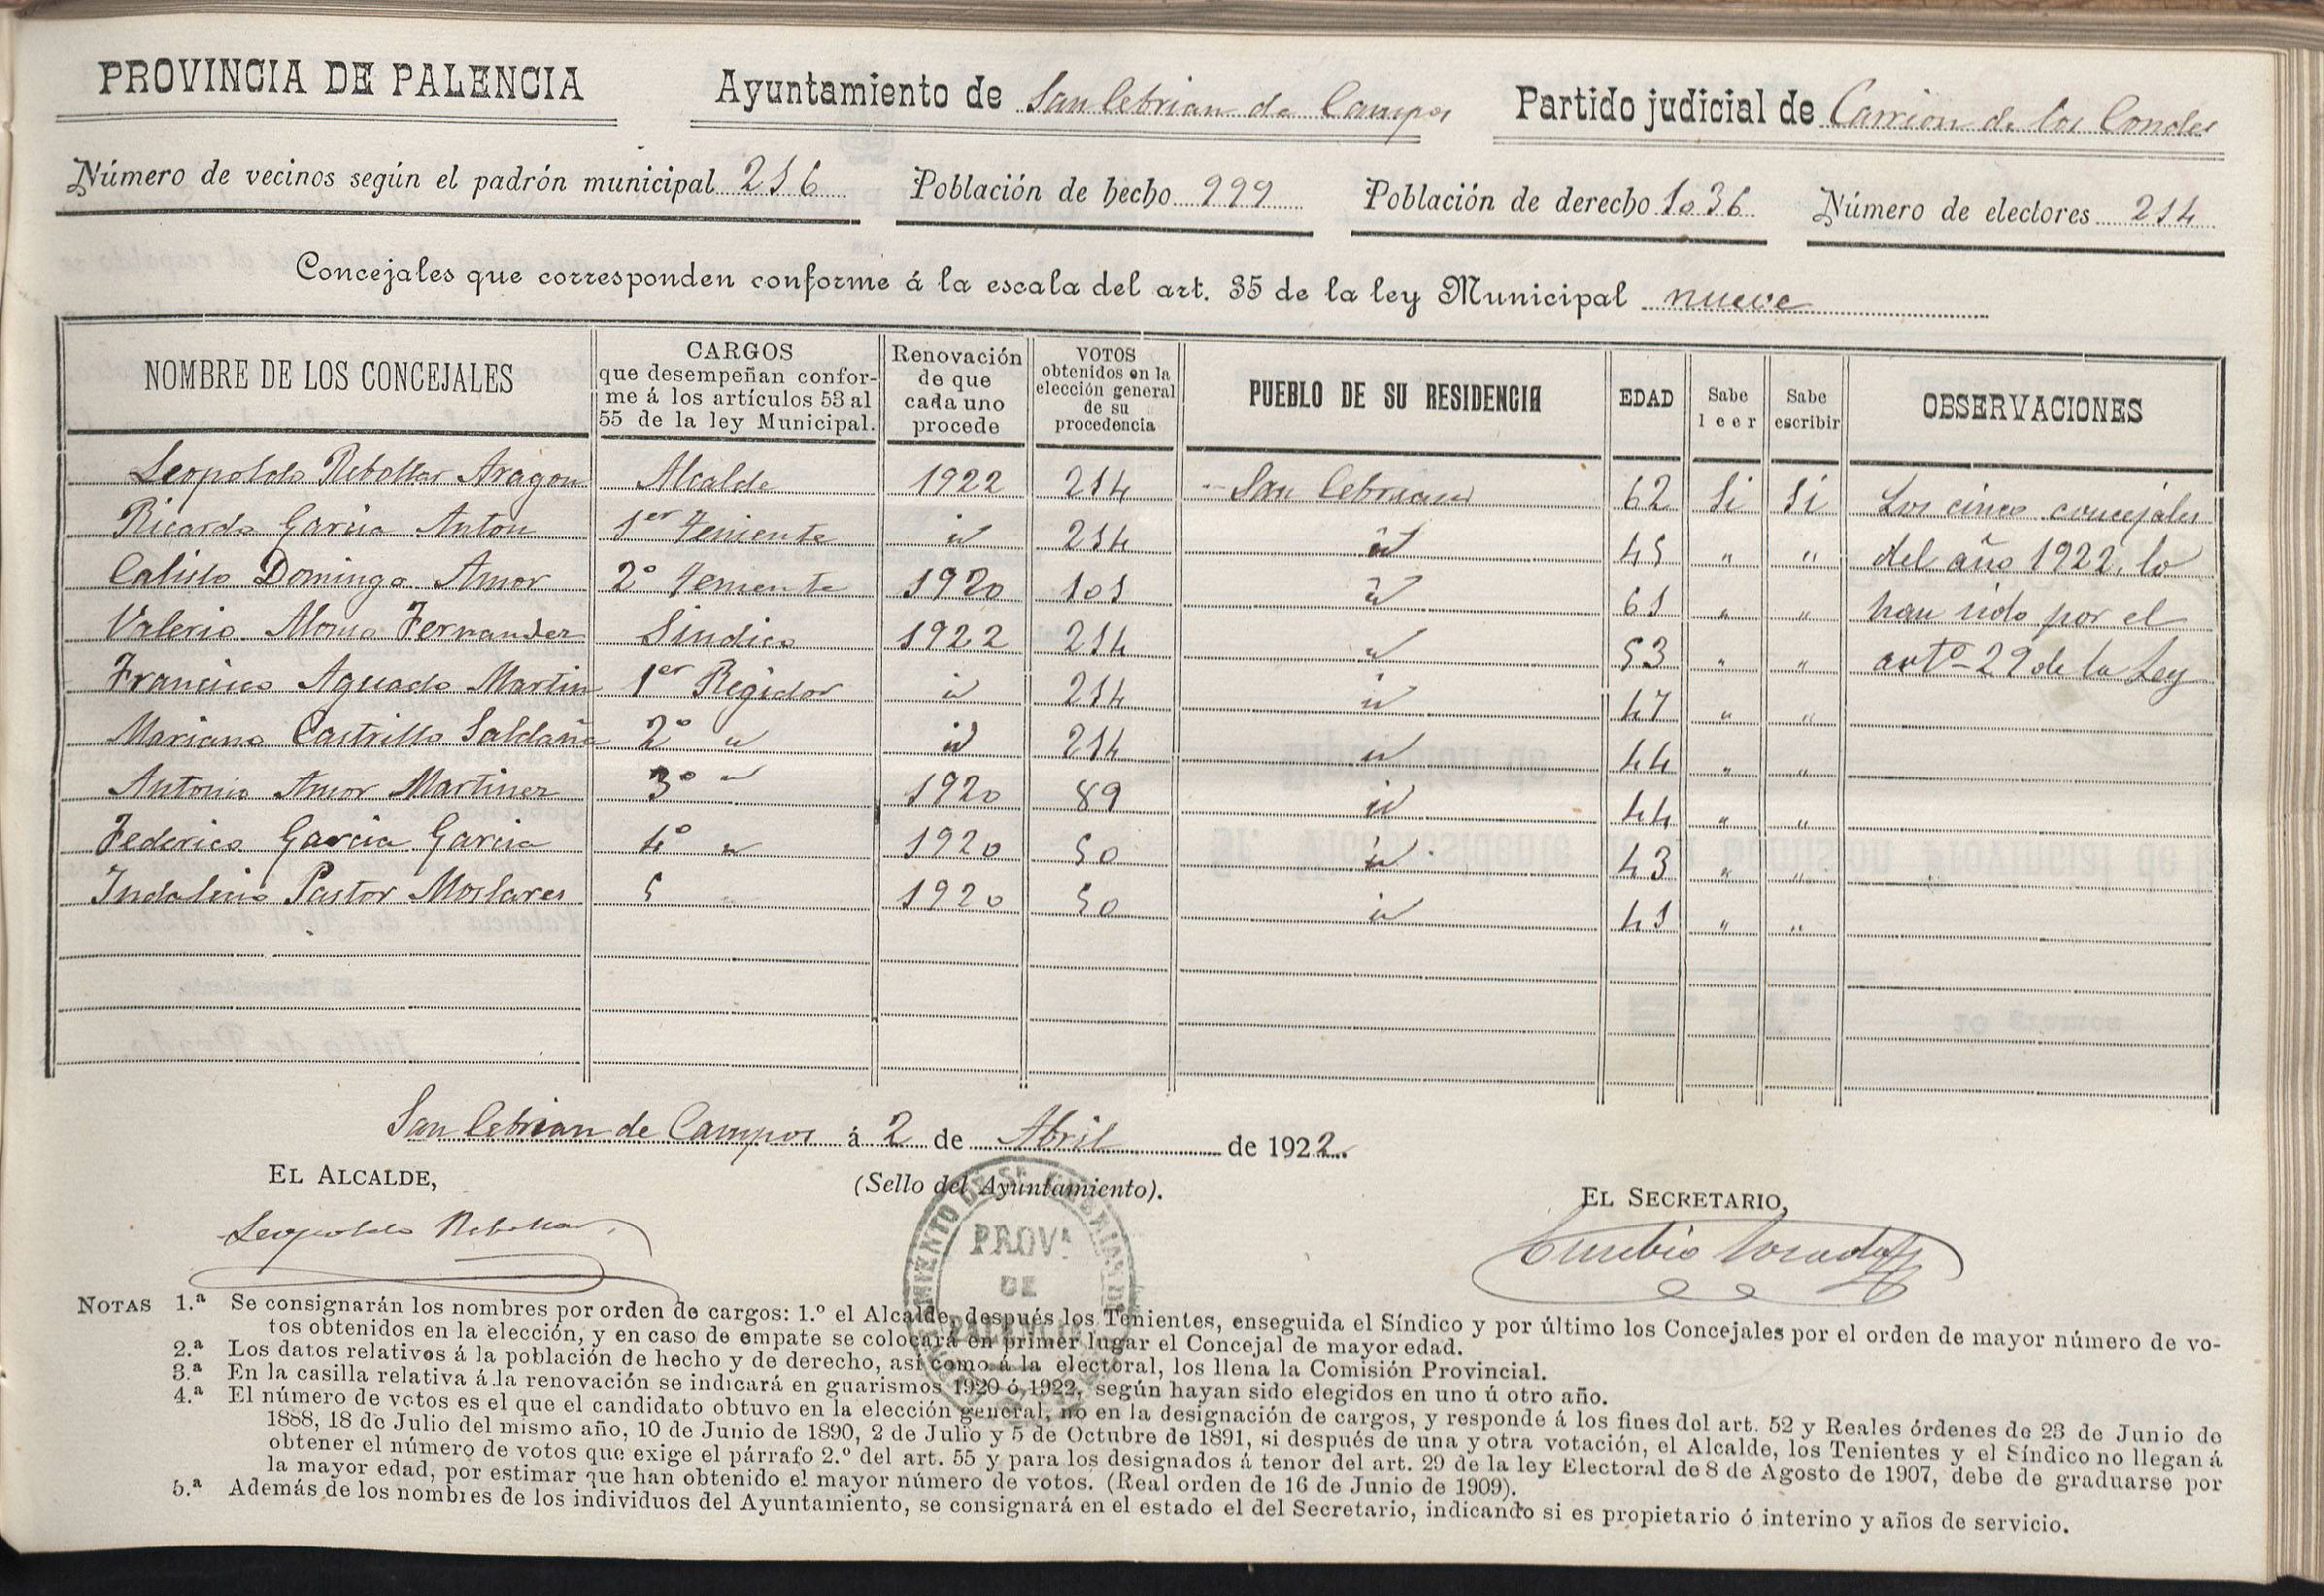 PROVINCIA DE PALENCIA Ayuntamiento de San Cebrian de Campos Partido judicial de Carrion de los Condes
Número de vecinos según el padrón municipal 216 Población de hecho 999 Población de derecho 1036 Número de electores 214
Concejales que corresponden conforme á la escala del art. 35 de la ley Municipal nueve
NOMBRE DE LOS CONCEJALES CARGOS que desempeñan confor- Renovación VOTOS PUEBLO DE SU RESIDENCIA EDAD Sabe Sabe OBSERVACIONES
me á los artículos 53 al de que obtenidos en la leer escribir
55 de la ley Municipal. cada uno elección general
procede de su
procedencia
Leopoldo Rebollar Aragon Alcalde 1922 214 San Cebrian 62 Si Si Los cinco concejales
Ricardo Garcia Anton 1er Teniente id 214 id 45 " " del año 1922, lo
Calisto Domingo Amor 2º Teniente 1920 101 id 61 " " han sido por el
Valerio Alonso Fernandez Sindico 1922 214 id 53 " " artº 29 de la Ley
Francisco Aguado Martin 1er Regidor id 214 id 47 " "
Mariano Castrillo Saldaña 2º " id 214 id 44 " "
Antonio Amor Martinez 3º " 1920 89 id 44 " "
Federico Garcia Garcia 4º " 1920 50 id 43 " "
Indalecio Pastor Moslares 5 " 1920 50 id 41 " "
San Cebrian de Campos á 2 de Abril de 1922.
EL ALCALDE, (Sello del Ayuntamiento). EL SECRETARIO,
Leopoldo Rebollar Eusebio
PROVª
DE
NOTAS 1.ª Se consignarán los nombres por orden de cargos: 1.º el Alcalde, después los Tenientes, enseguida el Síndico y por último los Concejales por el orden de mayor número de vo-
tos obtenidos en la elección, y en caso de empate se colocará en primer lugar el Concejal de mayor edad.
2.ª Los datos relativos á la población de hecho y de derecho, así como á la electoral, los llena la Comisión Provincial.
3.ª En la casilla relativa á la renovación se indicará en guarismos 1920 ó 1922, según hayan sido elegidos en uno ú otro año.
4.ª El número de votos es el que el candidato obtuvo en la elección general, no en la designación de cargos, y responde á los fines del art. 52 y Reales órdenes de 23 de Junio de
1888, 18 de Julio del mismo año, 10 de Junio de 1890, 2 de Julio y 5 de Octubre de 1891, si después de una y otra votación, el Alcalde, los Tenientes y el Síndico no llegan á
obtener el número de votos que exige el párrafo 2.º del art. 55 y para los designados á tenor del art. 29 de la ley Electoral de 8 de Agosto de 1907, debe de graduarse por
la mayor edad, por estimar que han obtenido el mayor número de votos. (Real orden de 16 de Junio de 1909).
5.ª Además de los nombres de los individuos del Ayuntamiento, se consignará en el estado el del Secretario, indicando si es propietario ó interino y años de servicio.